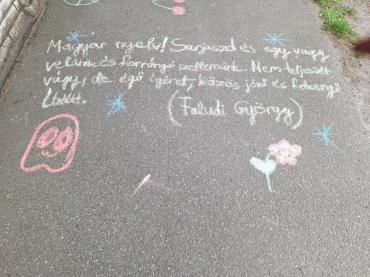 Magyar nyelv! Sarjaszd és egy vagy
velünk és forrongó szellemünk. Nem teljesült
vágy, de égő ígéret, közös jövő és felzengő
ítélet.
(Faludi György)